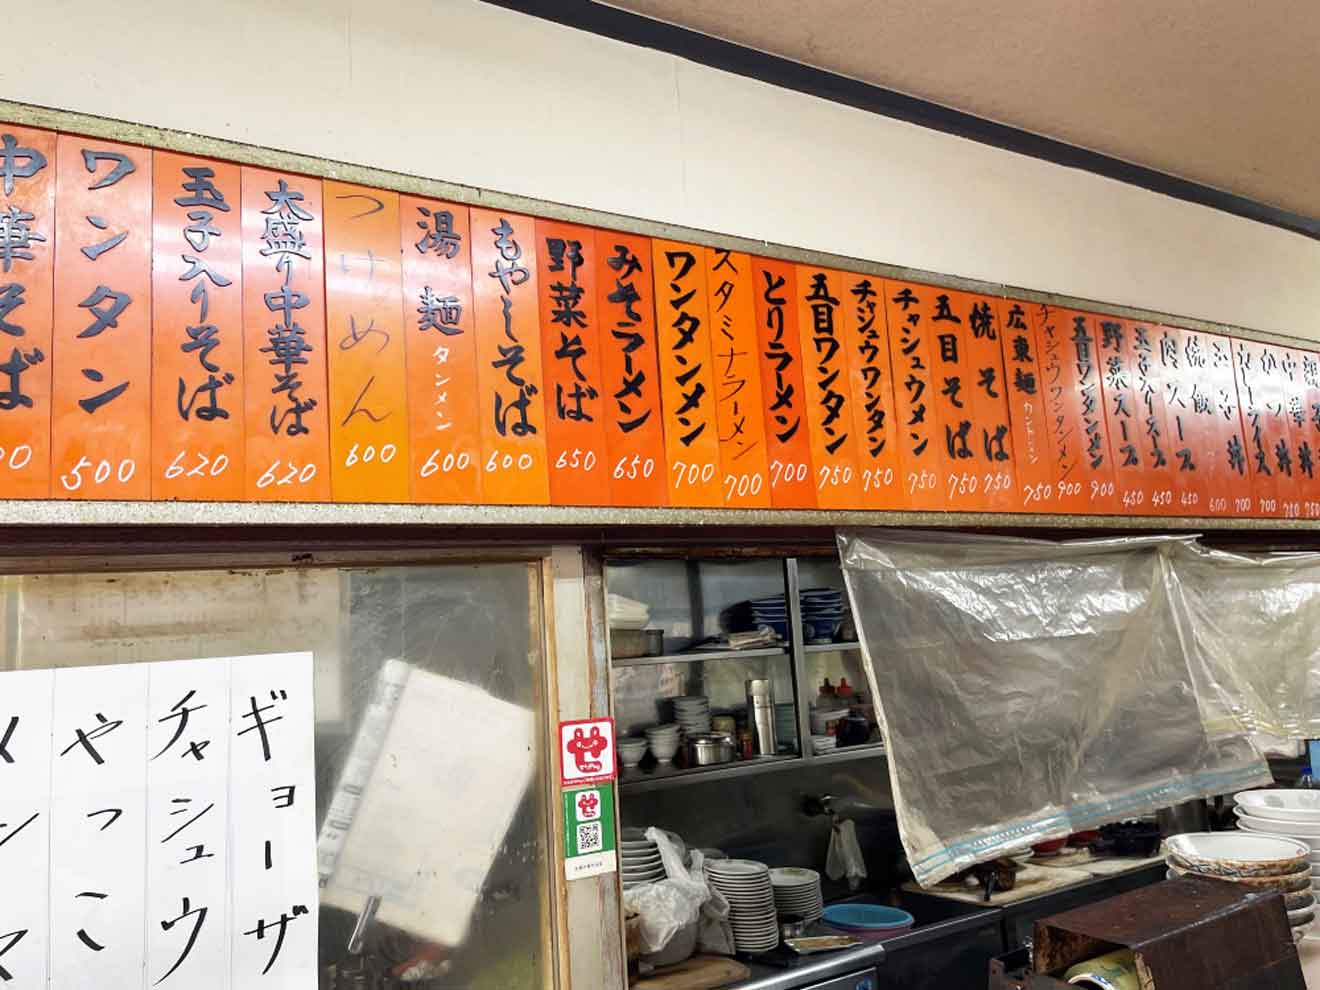 中華そば
ワンタン
500
玉子入りそば
620
大盛り中華そば
620
つけめん
600
湯麺
タンメン
600
もやしそば
600
野菜そば
650
みそラーメン
650
ワンタンメン
700
スタミナラーメン
700
とりラーメン
700
五目ワンタン
750
チャシュウワンタン
750
チャシュウメン
750
五目そば
750
焼そば
750
広東麺
カントンメン
750
チャシュウワンタンメン
900
五目ワンタンメン
900
野菜スープ
450
玉子スープ
450
肉スープ
450
焼飯
600
カレーライス
700
カツ丼
700
中華丼
700
750
ギョーザ
チャシュウ
やっこ
メンマ